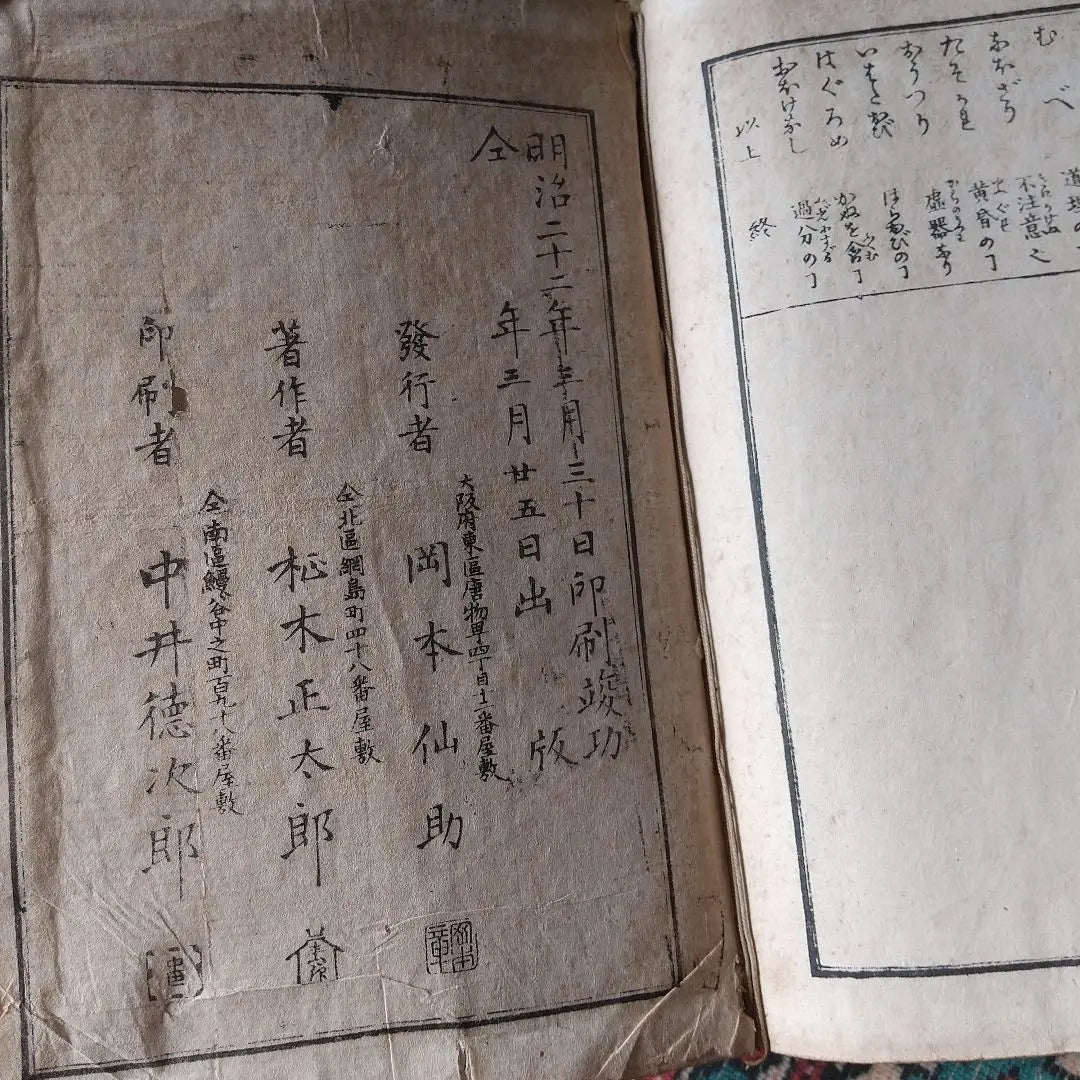 むべ 道理の
なほざり 不注意之
たそかれ 黄昏の丁
おうつり 虚器より
はらおびの丁
はぐろめ かねを含丁
おほけなし 過分の丁
以上 終
明治二十二年三月三十日印刷竣功
仝年三月廿五日出版
大阪府東區唐物町四丁目十二番屋敷
發行者 岡本仙助
仝北區網島町四十八番屋敷
著作者 柾木正太郎
仝南區鰻谷中之町百九十八番屋敷
印刷者 中井德次郎